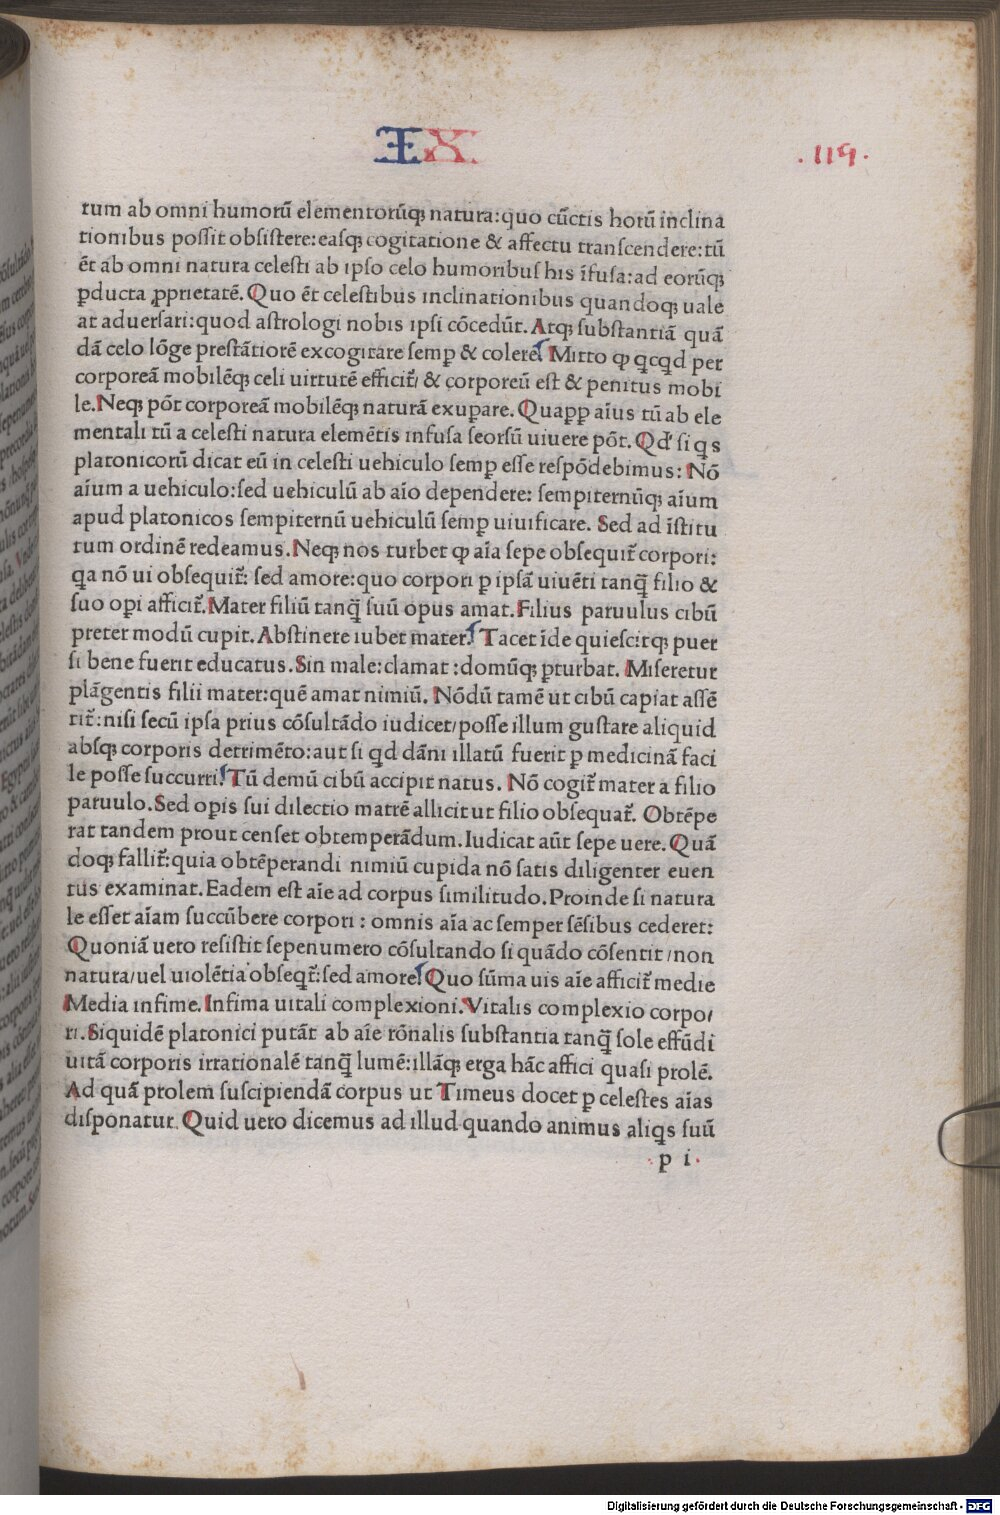 IX
.119.
rum ab omni humorū elementorūq; natura:quo cūctis horū inclina
tionibus possit obsistere:easq; cogitatione & affectu transcendere:tū
ēt ab omni natura celesti ab ipso celo humoribus his īfusa:ad eorūq;
ꝑducta ꝓprietatē. Quo ēt celestibus inclinationibus quandoq; uale
at aduersari:quod astrologi nobis ipsi cōcedūt. Atq; substantiā quā
dā celo lōge prestātiorē excogitare semꝑ & colere. Mitto ꝙ qcqd per
corporeā mobilēq; celi uirtutē efficit̄/ & corporeū est & penitus mobi
le. Neq; pōt corporeā mobilēq; naturā exupare. Quaꝓp aīus tū ab ele
mentali tū a celesti natura elemētis infusa seorsū uiuere pōt. Qd' si q̄s
platonicorū dicat eū in celesti uehiculo semꝑ esse respōdebimus: Nō
aīum a uehiculo:sed uehiculū ab aīo dependere: sempiternūq; aīum
apud platonicos sempiternū uehiculū semꝑ uiuificare. Sed ad īstitu
tum ordinē redeamus. Neq; nos turbet ꝙ aīa sepe obsequit̄ corpori:
q̄a nō ui obsequit̄: sed amore:quo corpori ꝑ ipsā uiuēti tanq̄ filio &
suo opi afficit̄. Mater filiū tanq̄ suū opus amat. Filius paruulus cibū
preter modū cupit. Abstinere iubet mater. Tacet īde quiescitq; puer
si bene fuerit educatus. Sin male: clamat :domūq; ꝑturbat. Miseretur
plāgentis filii mater:quē amat nimiū. Nōdū tamē ut cibū capiat assē
tit̄: nisi secū ipsa prius cōsultādo iudicet/posse illum gustare aliquid
absq; corporis detrimēto:aut si qd dāni illatū fuerit ꝑ medicinā faci
le posse succurri. Tū demū cibū accipit natus. Nō cogit̄ mater a filio
paruulo. Sed opis sui dilectio matrē allicit ut filio obsequat̄. Obtēpe
rat tandem prout censet obtemperādum. Iudicat aūt sepe uere. Quā
doq; fallit̄: quia obtēperandi nimiū cupida nō satis diligenter euen
tus examinat. Eadem est aīe ad corpus similitudo. Proinde si natura
le esset aīam succūbere corpori : omnis aīa ac semper sēsibus cederet:
Quoniā uero resistit sepenumero cōsultando si quādo cōsentit /non
natura/uel uiolētia obseqt̄: sed amore. Quo sūma uis aīe afficit̄ medie
Media infime. Infima uitali complexioni. Vitalis complexio corpo/
ri. Siquidē platonici putāt ab aīe rōnalis substantia tanq̄ sole effūdi
uitā corporis irrationalē tanq̄ lumē:illāq; erga hāc affici quasi prolē.
Ad quā prolem suscipiendā corpus ut Timeus docet ꝑ celestes aīas
disponatur. Quid uero dicemus ad illud quando animus aliq̄s suū
p i.
Digitalisierung gefördert durch die Deutsche Forschungsgemeinschaft - DFG